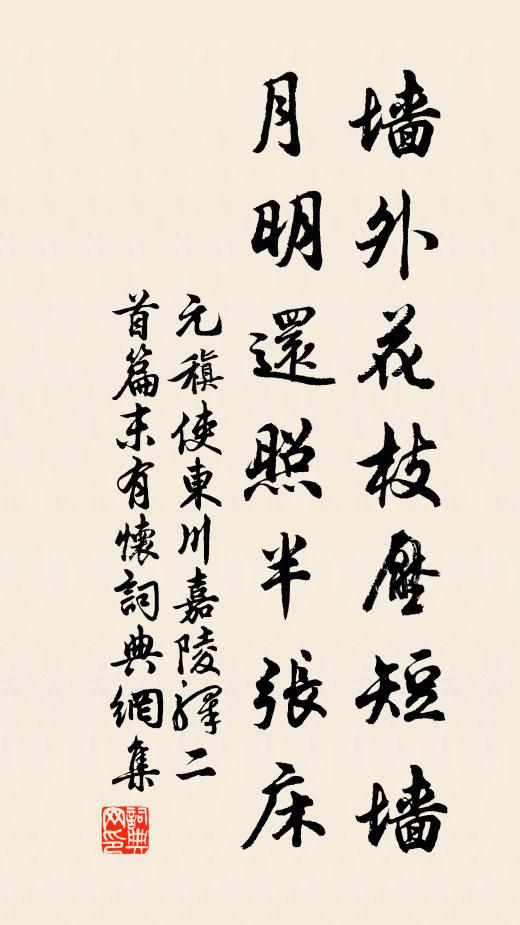 墙外花枝壓短墙
月明還照半張床
元稹使東川嘉陵驛二
首篇末有懷詞典網集
詞典
网印